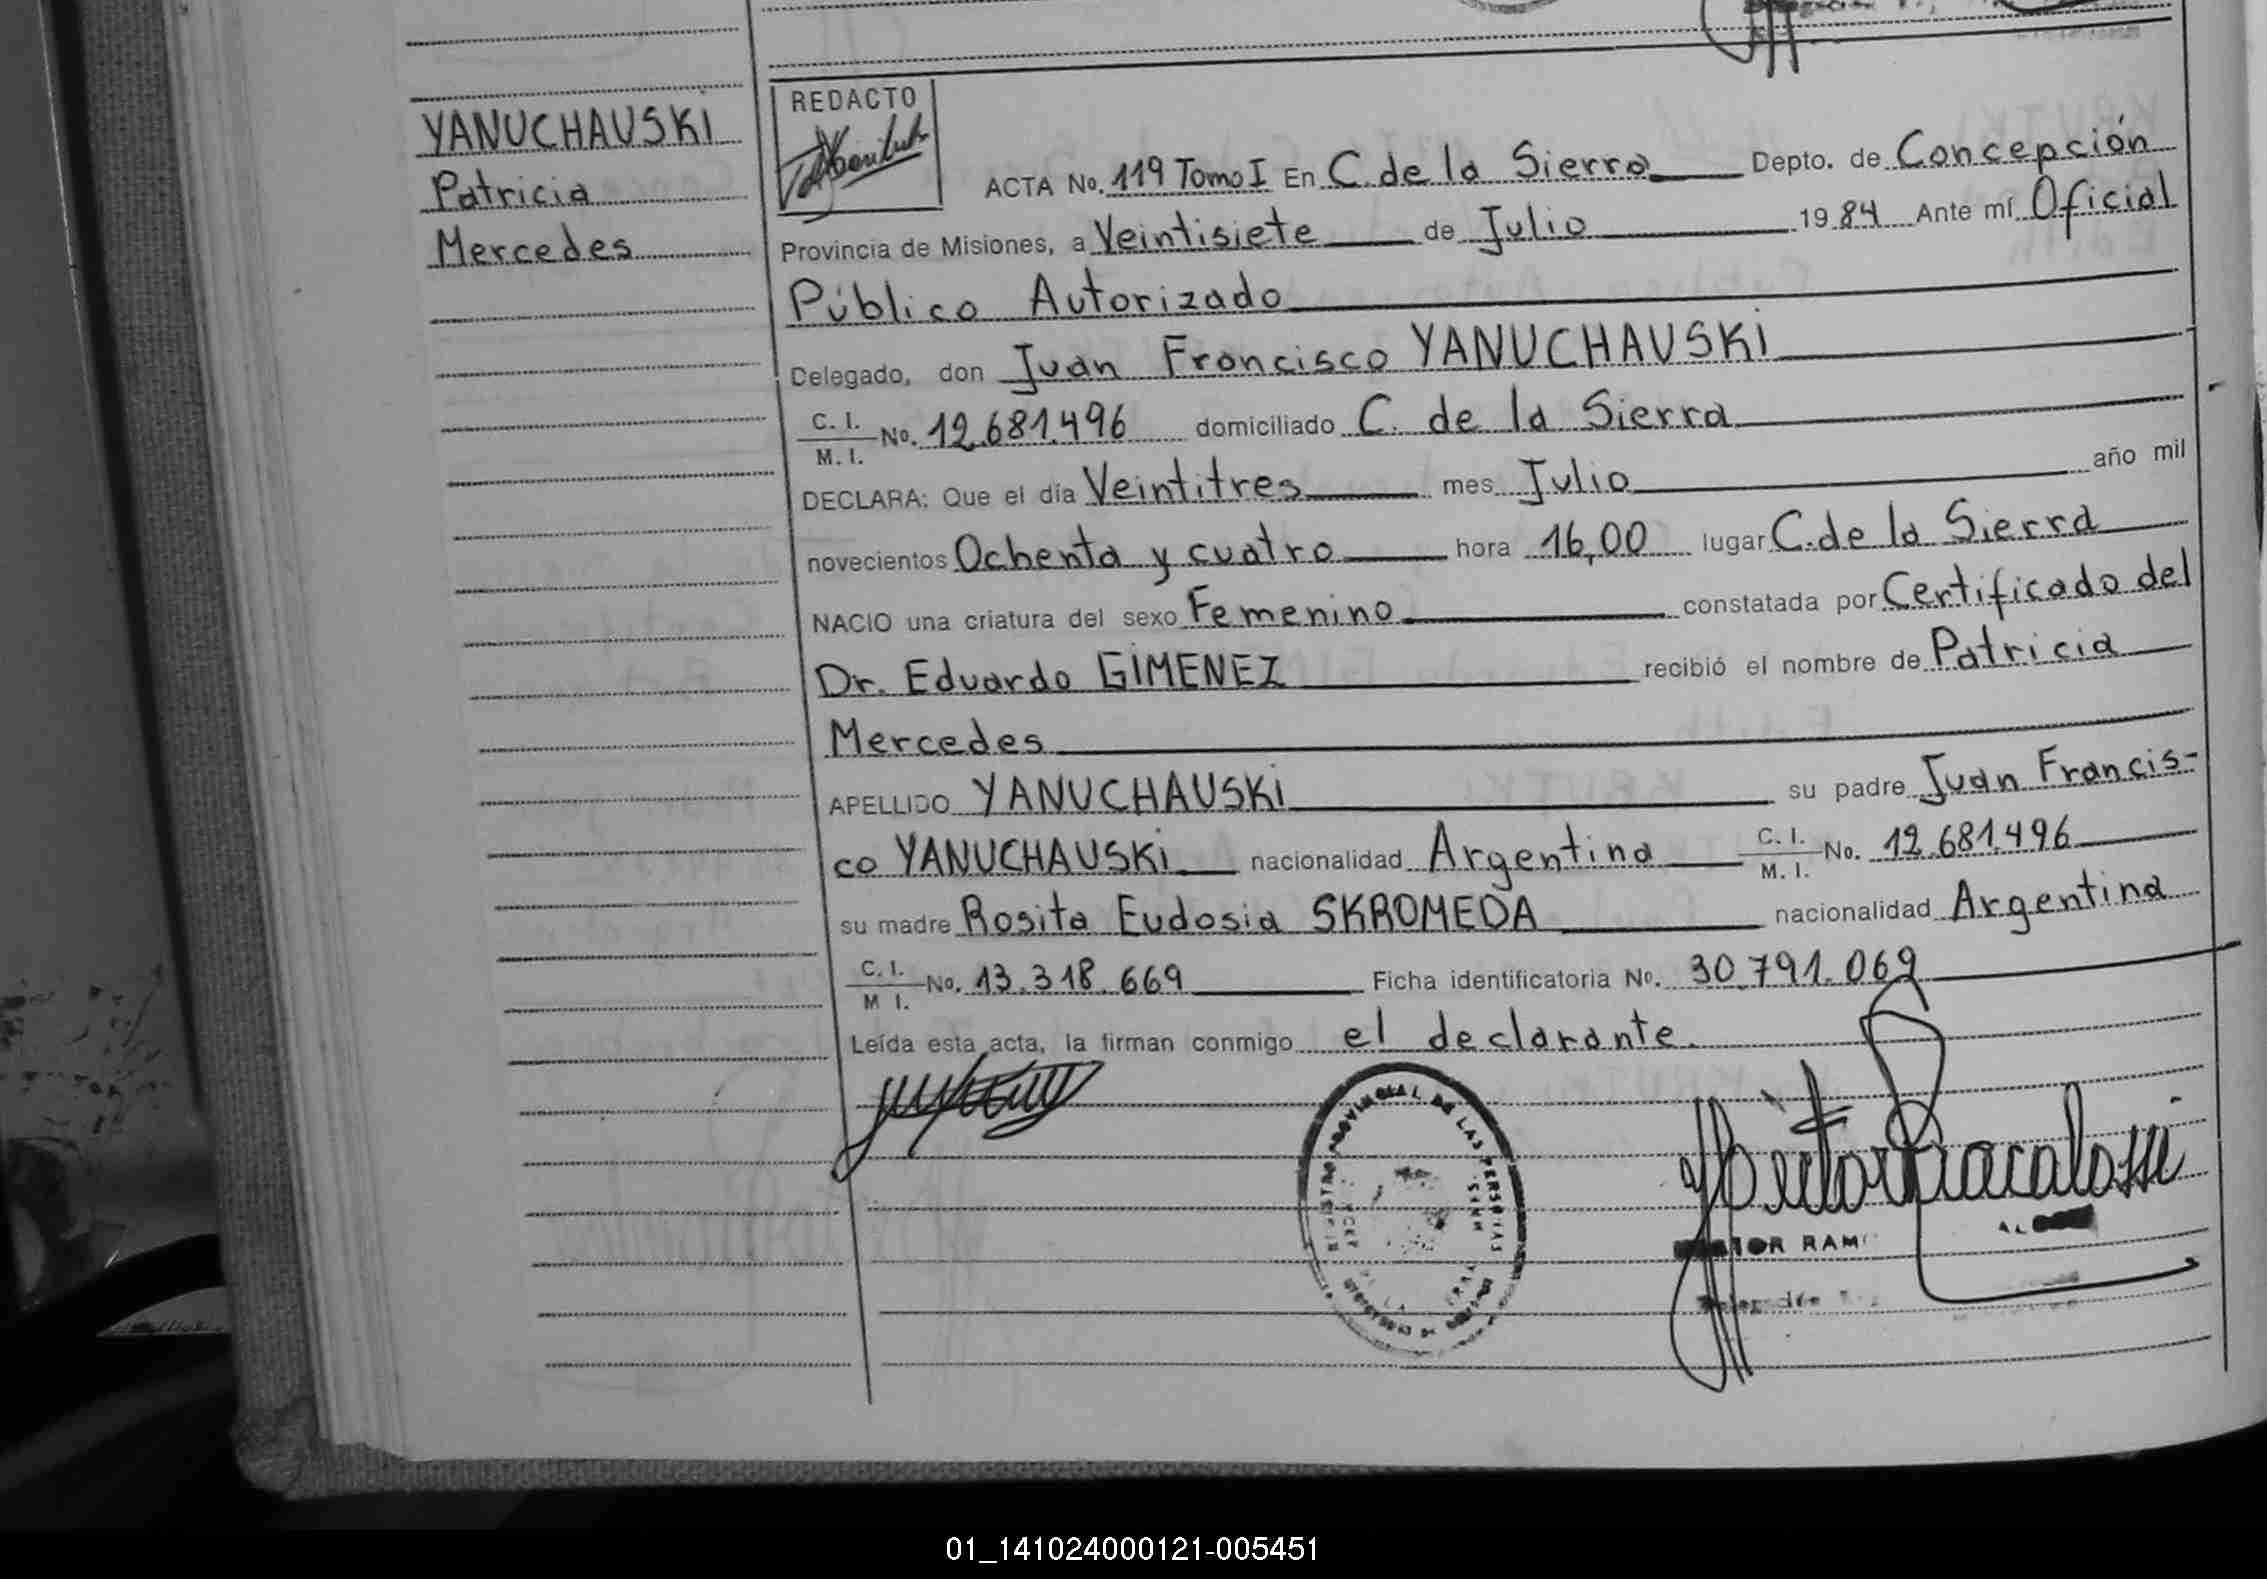 YANUCHAUSKI
Patricia
Mercedes
REDACTO
ACTA No. 119 Tomo I En C. de la Sierra Depto. de Concepción
Provincia de Misiones, a Veintisiete de Julio 1984 Ante mí Oficial
Público Autorizado
Delegado, don Juan Francisco YANUCHAUSKI
C. I.
M. I. No. 12.681.496 domiciliado C. de la Sierra
DECLARA: Que el día Veintitres mes Julio año mil
novecientos Ochenta y cuatro hora 16,00 lugar C. de la Sierra
NACIO una criatura del sexo Femenino constatada por Certificado del
Dr. Eduardo GIMENEZ recibió el nombre de Patricia
Mercedes
APELLIDO YANUCHAUSKI su padre Juan Francis-
co YANUCHAUSKI nacionalidad Argentina C. I. M. I. No. 12.681.496
su madre Rosita Eudosia SKROMEDA nacionalidad Argentina
C. I. M I. No. 13.318.669 Ficha identificatoria No. 30.791.069
Leída esta acta, la firman conmigo el declarante.
PROVINCIAL DE LAS PERSONAS
RAM
01_141024000121-005451